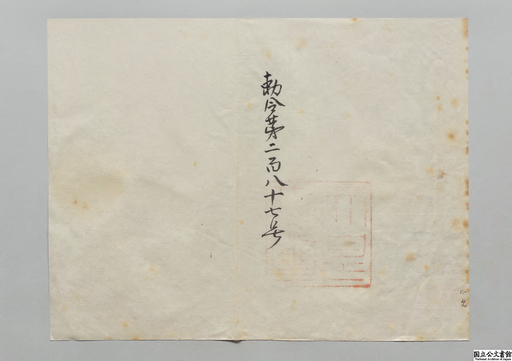 勅令第二百八十七号
国立公文書館
National Archives of Japan